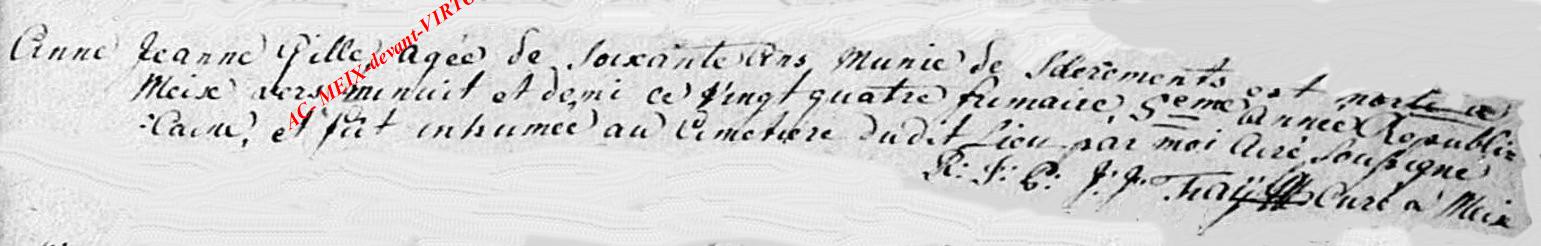 Anne Jeanne Gille, agée de soixante ans, munie de sacrements est morte a
Meix vers minuit et demi ce vingt quatre frimaire, 5eme année Republi=
:caine, et fut inhumée au cimetiere dudit lieu par moi curé soussigné
R: I: P: J: J: curé a Meix
AC- MEIX-devant-VIRTU